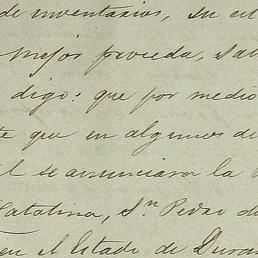 de inventarios, su
mejor proceda, sal
digo: que por medio
te que en algunos de
l se anunciara la
Catalina, Sn Pedro de
en el Estado de Duran